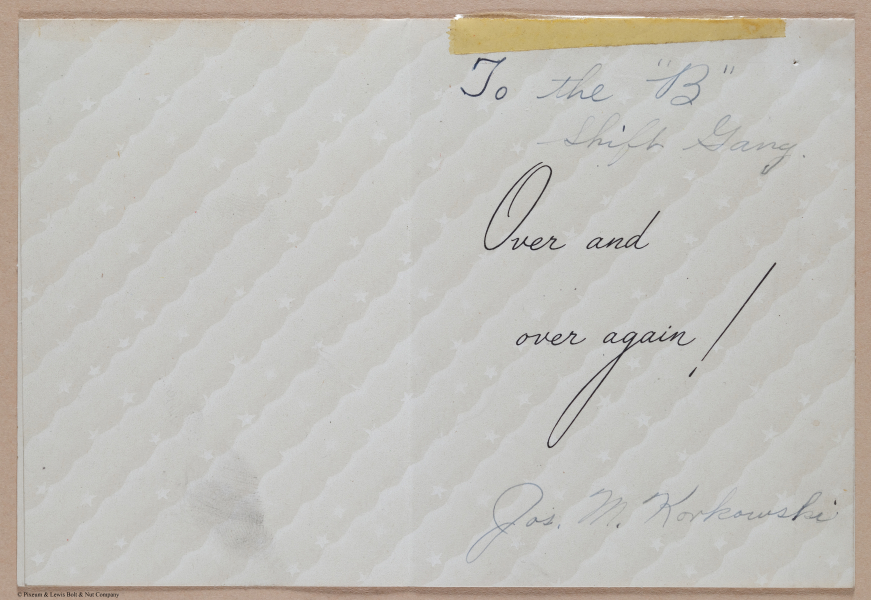 To the "B"
Shift Gang.
Over and
over again!
Jos. M. Korkowski
© Pixeum & Lewis Bolt & Nut Company